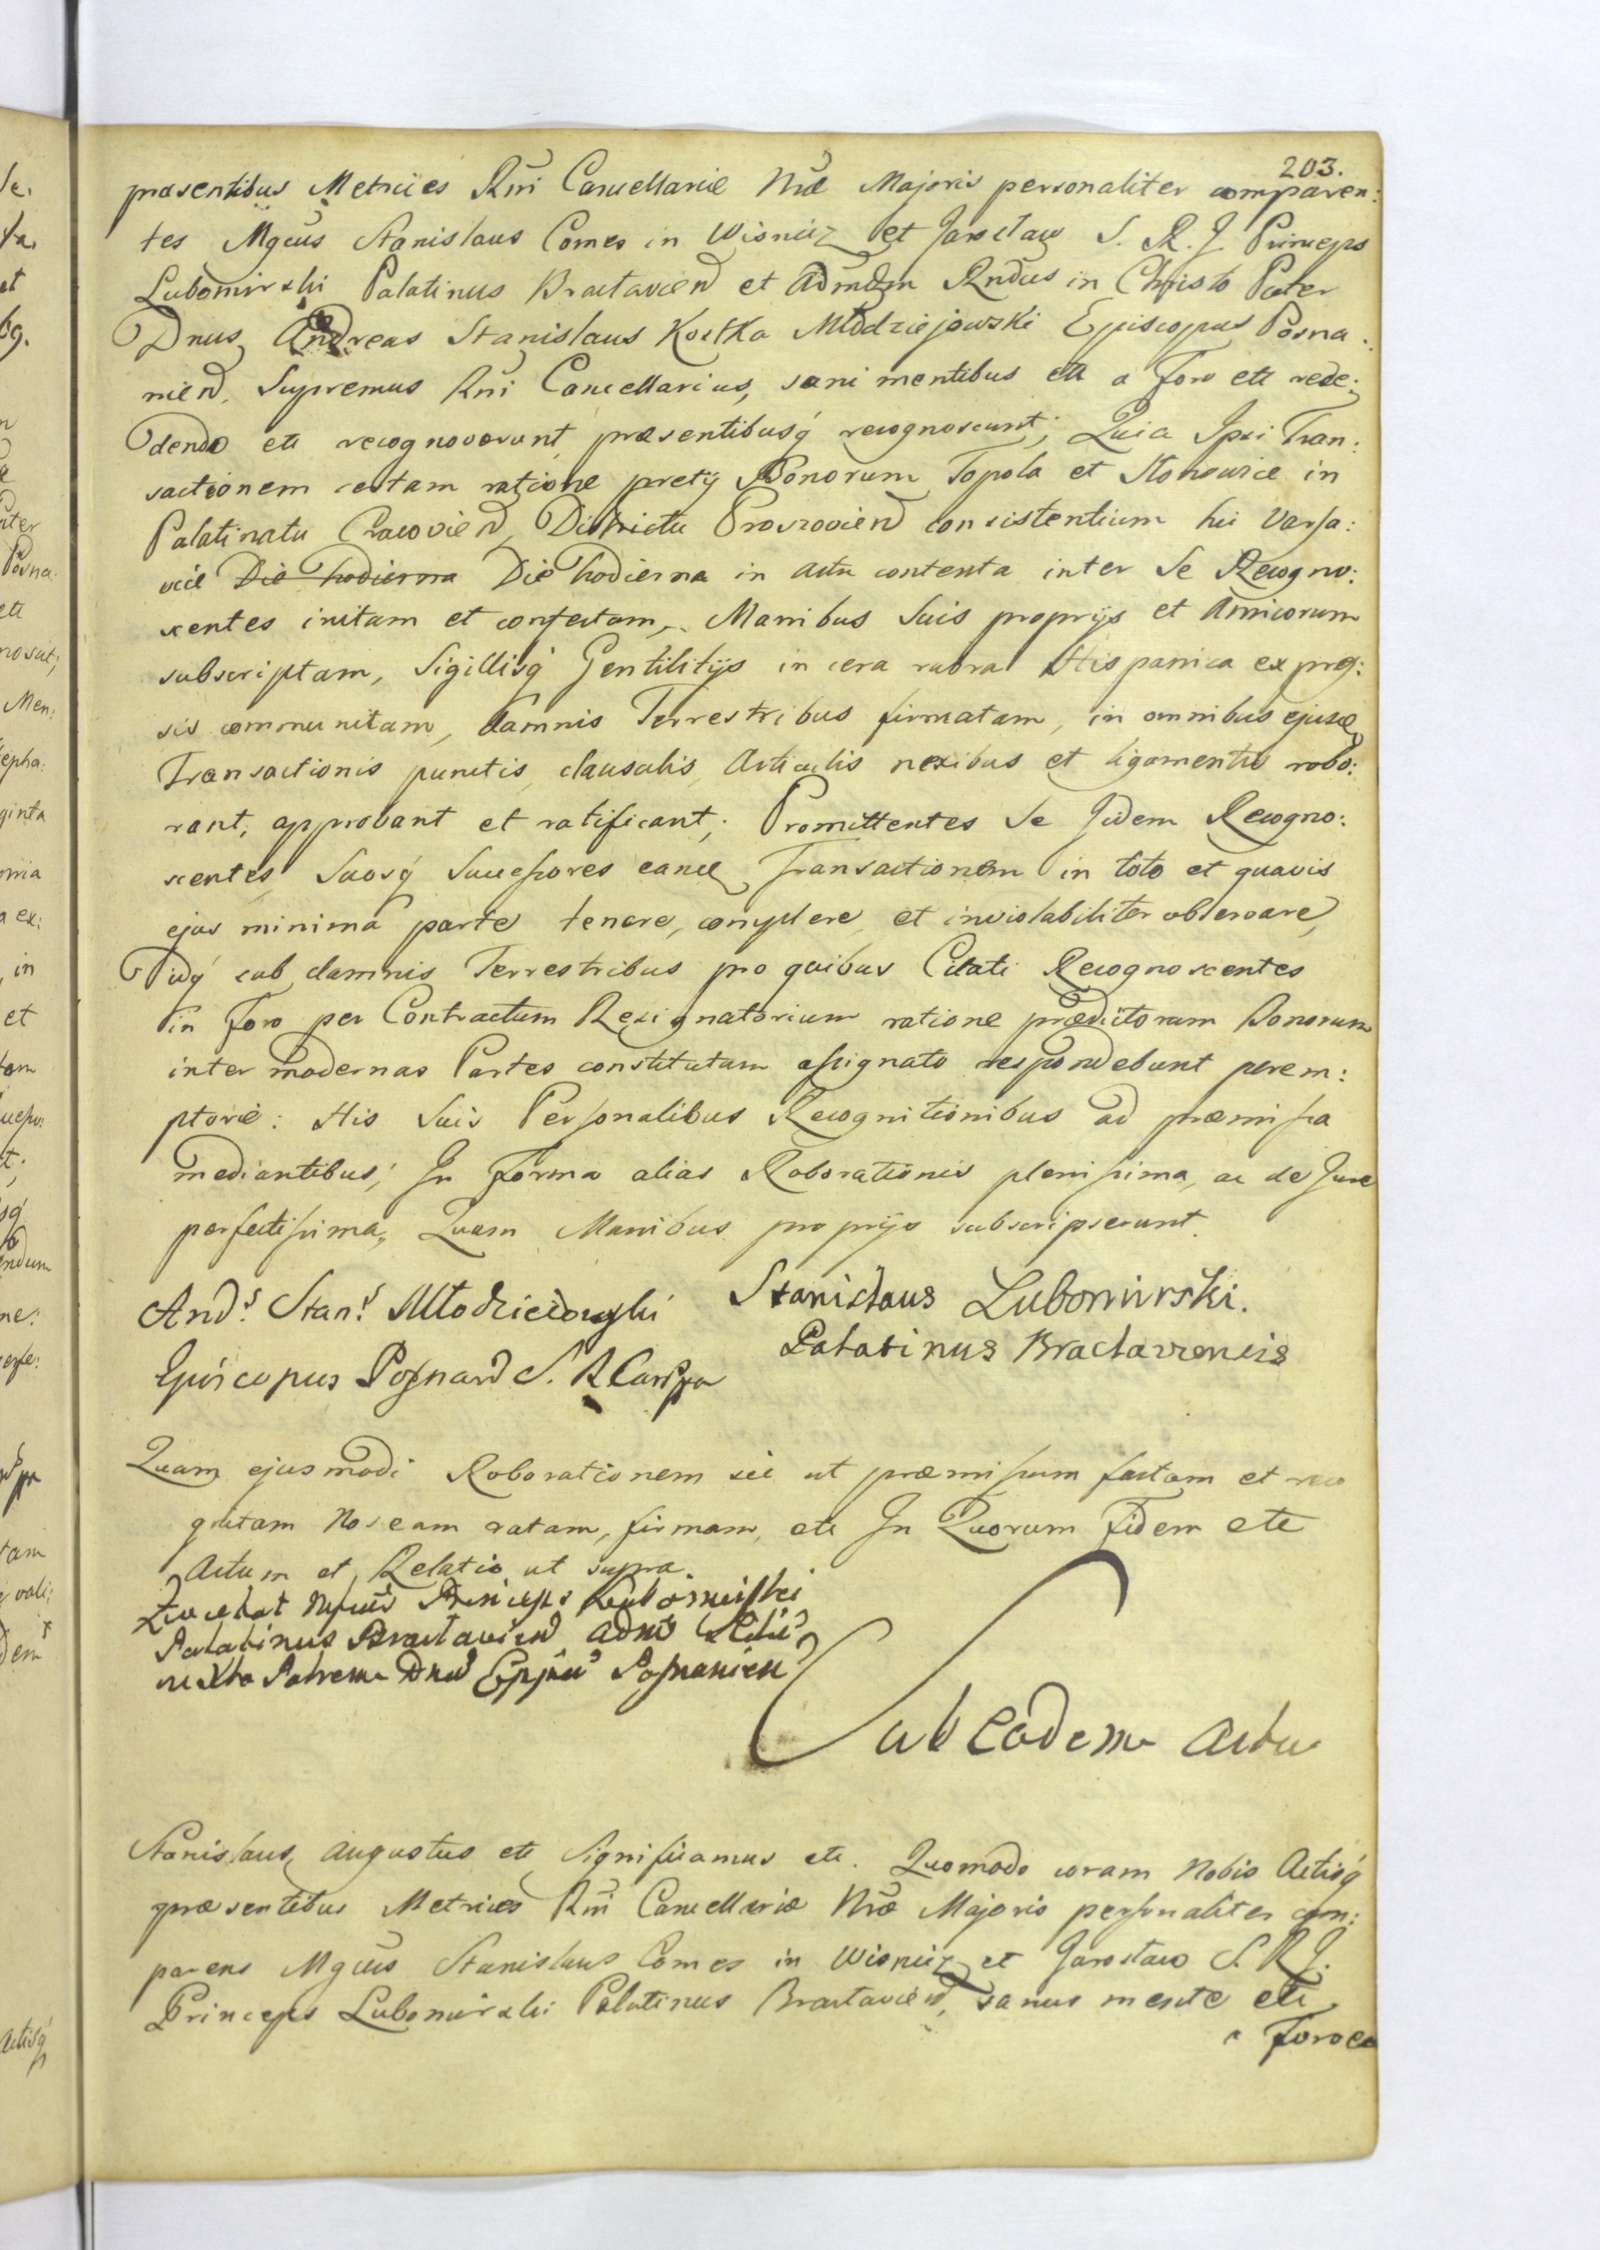 203.
præsentibus Metrices Rni Cancellariæ Nræ Majoris personaliter comparen:
tes Mgcus Stanislaus Comes in Wisnicz et Jaroslaw S. R. J. Princeps
Lubomirski Palatinus Braclavien et Admdum Rndus in Christo Pater
Dnus Andreas Stanislaus Kostka Młodziejowski Episcopus Posna:
nien. Supremus Rni Cancellarius, sani mentibus etc a Foro etc rece:
dendo etc recognoverunt præsentibusq recognoscunt; Quia Ipsi Tran:
sactionem certam ratione pretij Bonorum Topola et Stonowice in
Palatinatu Cracovien, Districtu Proszovien consistentium hic Varsa:
viæ Die hodierna Die hodierna in actu contenta inter Se Recogno:
scentes initam et confectam, Manibus Suis proprijs et Amicorum
subscriptam, Sigillisq Gentilitijs in cera rubra Hispanica expres:
sis communitam, Damnis Terrestribus firmatam, in omnibus ejusce
Transactionis punctis, clausulis, Articulis nexibus et ligamentis robo:
rant, approbant et ratificant; Promittentes Se Iidem Recogno:
scentes Suosq Successores eance Transactionem in toto et quavis
ejus minima parte tenere, complere et inviolabiliter observare,
idq sub damnis Terrestribus pro quibus Citati Recognoscentes
in Foro per Contractum Resignatorium ratione prædictorum Bonorum
inter modernas Partes constitutam assignato respondebunt perem:
ptorie: His Suis Personalibus Recognitionibus ad præmissa
mediantibus; In Forma alias Roborationis plenissima, ac de Jure
perfectissima, Quam Manibus proprijs subscripserunt.
And.s Stan.s Młodzieiowski
Stanislaus Lubomirski.
Episcopus Posnan S. R Canc
Palatinus Braclaviensis
Quam ejusmodi Roborationem sic ut præmissum factam et reco
gnitam Nos eam ratam, firmam, etc In Quorum Fidem etc
Actum et Relatio ut supra
Princeps Lubomirski
Palatinus Braclavien Adm
in Xto Patrem Dnu Posnanien
Sub Eodem Actu
Stanislaus Augustus etc Significamus etc. Quomodo coram Nobis Actisq
præsentibus Metrices Rni Cancellariæ Nræ Majoris personaliter com:
parens Mgcus Stanislaus Comes in Wisnicz et Jaroslaw S. R. J.
Princeps Lubomirski Palatinus Braclavien, sanus mente etc
a Foro etc